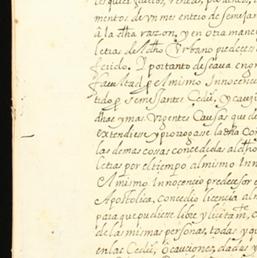 mentos de un mes entero de semejan
a la dha razon, y en otra maner
letras de dho Urbano predeces
fecido. Y portanto deseava en gr
facultad, pel mismo Innocenc
tido, p semejantes Cedul, y cauci
dhas y mas Urgentes Causas que de
extendiese y prorogase la dha Con
las demas cosas concedidas al dho
letras por el tiempo al mismo Inn
el mismo Innocencio predecesor e
Apostolica, concedio licencia al m
para que pudiese libre y licitam, c
de las mismas personas, todas y q
en las Cedul, o cauciones, dadas y